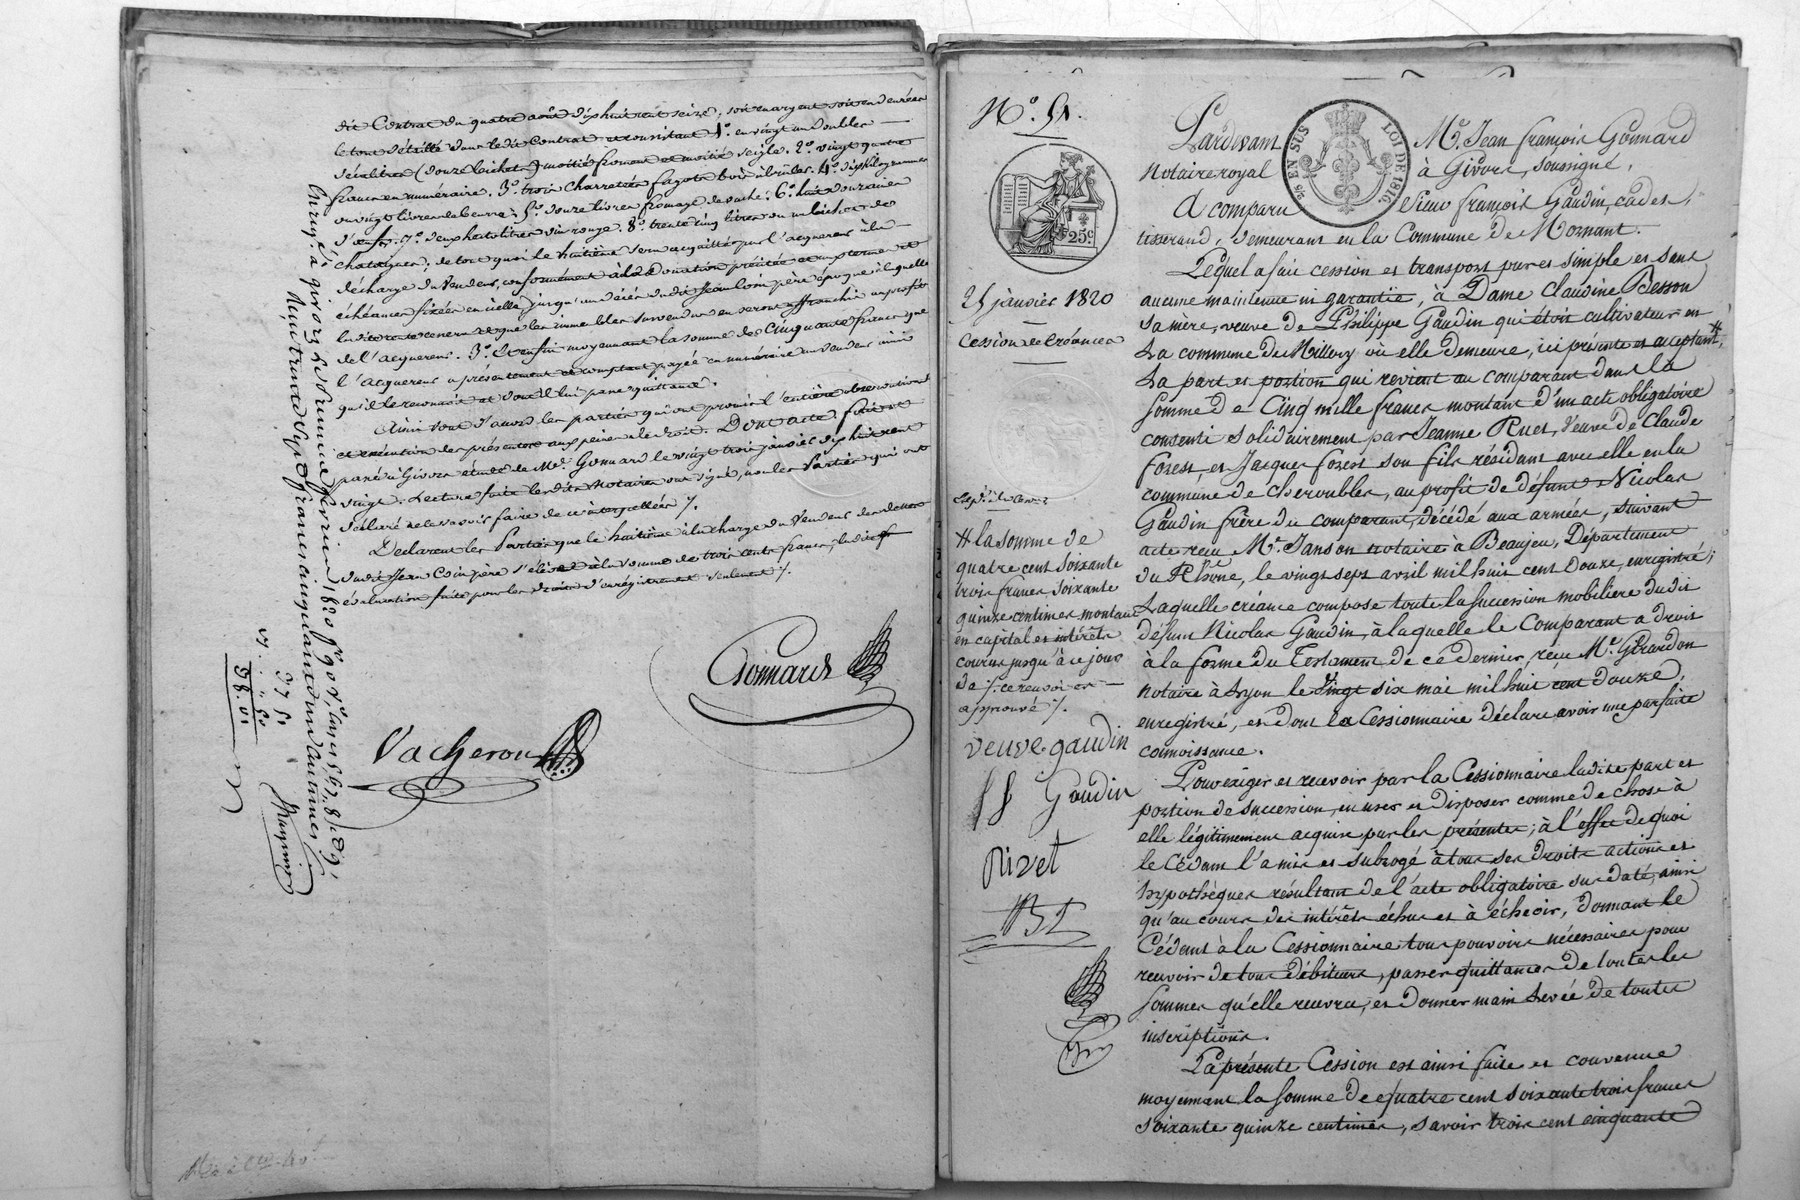 dit Contrat du quatre août dixhuit cent seize, soit en argent soit en denrées
le tout détaillé dans ledit contrat et consistant 1.° en vingt un doubles
décalitres (douze bichets) moitié froment et moitié seigle. 2.° vingt quatre
francs en numéraire. 3.° trois charretées fagots bois à brûler. 4.° dix kilogrammes
ou vingt livres de beurre; 5.° douze livres fromage de vache; 6.° huit douzaines
d'œufs. 7.° deux hectolitres vin rouge. 8.° trente cinq litres ou un bichet de
chataignes; de tout quoi le huitième sera acquitté par l'acquéreur à la
décharge du Vendeur, conformément à la donation précitée et au terme et
échéances fixées en icelle, jusqu'au décès dudit Jean Coinpère époque à laquelle
la dite rente cessera et que les immeubles survendus en seront affranchis au profit
de l'acquéreur. 3.° Et enfin moyennant la somme de Cinquante francs que
l'acquéreur a présentement et comptant payée en numéraire au Vendeur ainsi
qu'il le reconnait et dont il lui passe quittance.
Ainsi sont d'accord les parties qui ont promis l'entière observation
et exécution des présentes aux peines de droit. Dont acte fait et
passé à Givors étude de M.e Gonnard le vingt trois janvier dix huit cent
vingt. Lecture faite lesdits Notaires ont signé, non les Parties qui ont
déclaré ne le savoir faire de ce interpellées /.
Déclarent les Parties que le huitième à la charge du Vendeur des dettes
dudit Jean Coinpère s'élève à la somme de trois cents francs, ladite
évaluation faite pour les droits d'enregistrement seulement /.
Gonnard
Vacheron
Enregé à givors le deux février 1820
Reçu trente sept francs cinquante un centimes
37 51
38.01
N.° 51.
25.c
25 janvier 1820
Cession de Créances
EN SUS
LOI DE 1816
Pardevant M.e Jean françois Gonnard
Notaire royal à Givors, soussigné,
A comparu Sieur françois Gaudin, cadet,
tisserand, demeurant en la Commune de Mornant.
Lequel a fait cession et transport pur et simple et sans
aucune maintenue ni garantie, à Dame Claudine Besson
sa mère, veuve de Philippe Gaudin qui étoit cultivateur en
la commune de Millery où elle demeure, ici présente et acceptant, #
La part et portion qui revient au comparant dans la
somme de Cinq mille francs montant d'un acte obligatoire
consenti solidairement par Jeanne Ruet, veuve de Claude
forest et Jacques forest son fils résidant avec elle en la
commune de cheroubles, au profit de défunt Nicolas
Gaudin frère du comparant, décédé aux armées, suivant
acte reçu M.e Janson notaire à Beaujeu, Département
du Rhône, le vingt sept avril mil huit cent douze, enregistré;
Laquelle créance compose toute la succession mobilière dudit
défunt Nicolas Gaudin, à laquelle le Comparant a droit
à la forme du Testament de ce dernier, reçu M.e Girardon
notaire à Lyon le vingt six mai mil huit cent douze,
enregistré, et dont la Cessionnaire déclare avoir une parfaite
connoissance.
Pour exiger et recevoir par la Cessionnaire ladite part et
portion de succession, en user et disposer comme de chose à
elle légitimement acquise par les présentes; à l'effet de quoi
le Cédant l'a mis et subrogé à tous ses droits actions et
hypothèques résultant de l'acte obligatoire sus daté, ainsi
qu'au cours des intérêts échus et à échoir, donnant le
Cédant à la Cessionnaire tous pouvoirs nécessaires pour
recevoir de tous débiteurs, passer quittances de toutes les
sommes qu'elle recevra, et donner main levée de toutes
inscriptions.
La présente Cession est ainsi faite et convenue
moyennant la somme de quatre cent soixante trois francs
soixante quinze centimes, savoir trois cent cinquante
# la somme de
quatre cent soixante
trois francs soixante
quinze centimes montant
en capital et intérêts
courus jusqu'à ce jour
de /. ce renvoi est
approuvé /.
veuve gaudin
ff Gaudin
Rivet